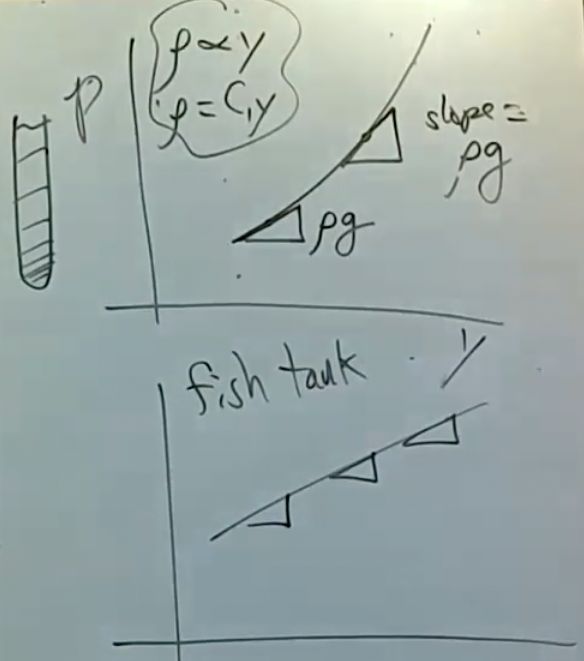 ρ ∝ y
ρ = C₁y
P
slope =
ρg
ρg
y
fish tank